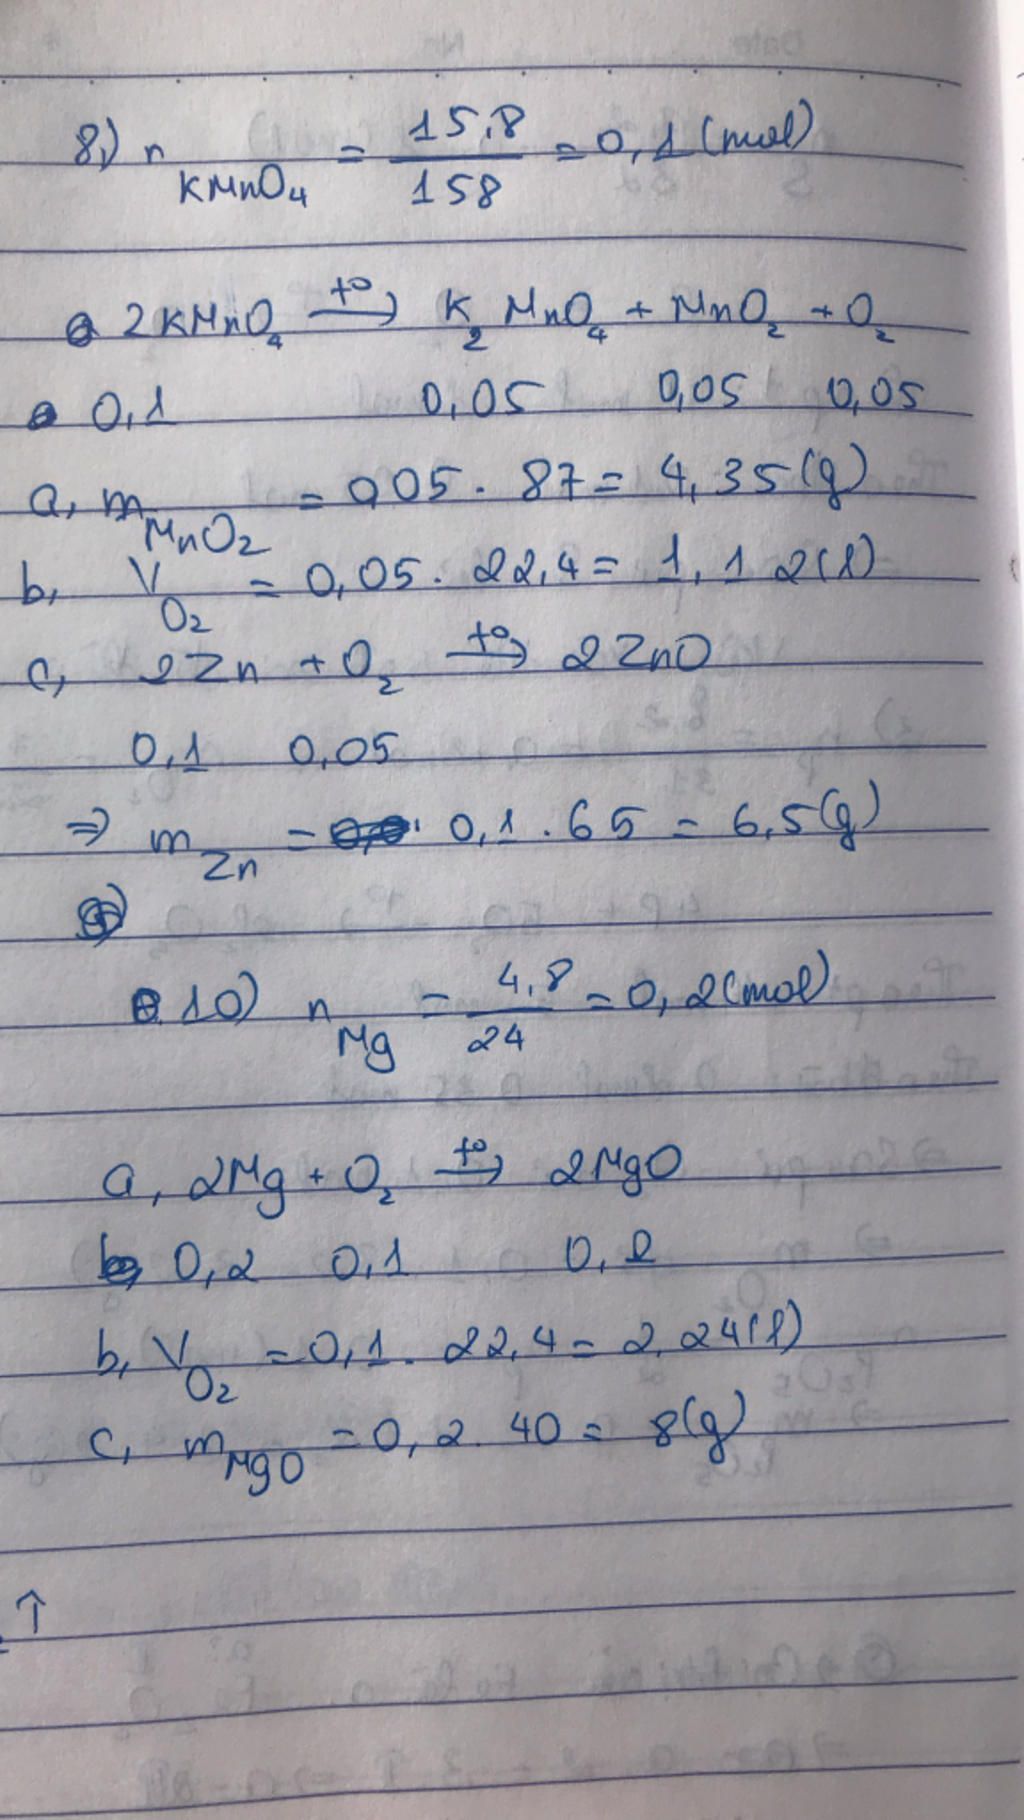 8,) n KMnO₄ = 15,8 / 158 = 0,1 (mol)
2KMnO₄ →(t°) K₂MnO₄ + MnO₂ + O₂
0,1 0,05 0,05 0,05
a, m MnO₂ = 0,05 . 87 = 4,35 (g)
b, V O₂ = 0,05 . 22,4 = 1,12 (l)
c, 2Zn + O₂ →(t°) 2ZnO
0,1 0,05
⇒ m Zn = 0,1 . 65 = 6,5 (g)
10) n Mg = 4,8 / 24 = 0,2 (mol)
a, 2Mg + O₂ →(t°) 2MgO
0,2 0,1 0,2
b, V O₂ = 0,1 . 22,4 = 2,24 (l)
c, m MgO = 0,2 . 40 = 8 (g)
↑